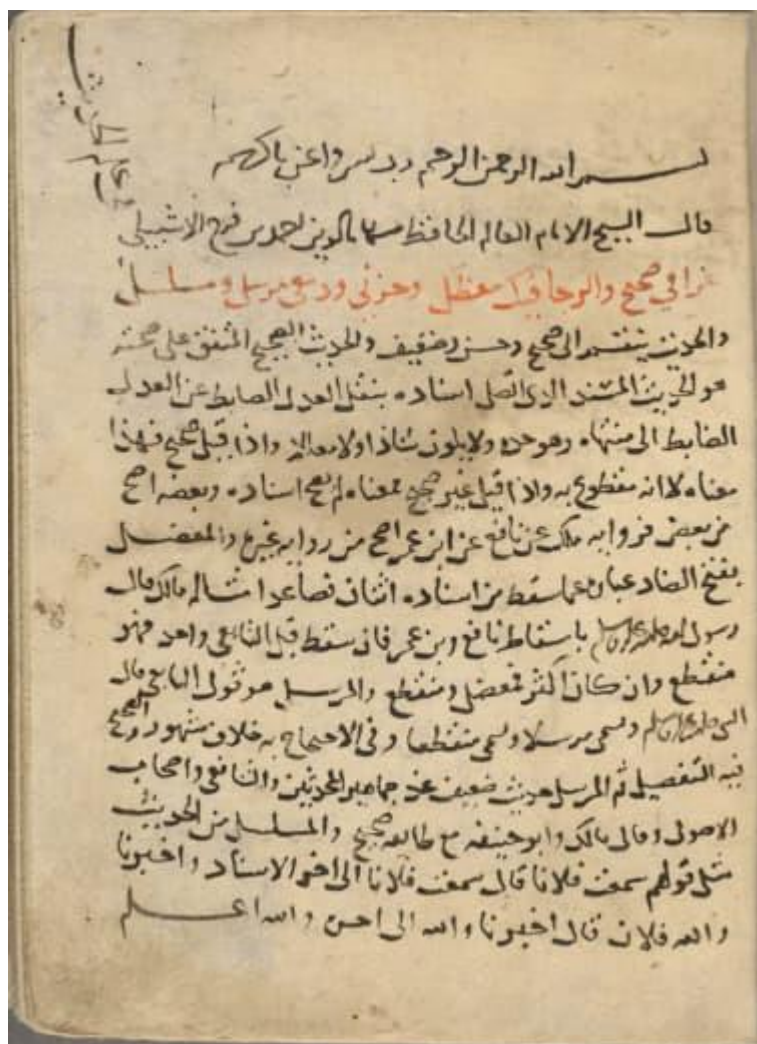 علم الحديث
بسم الله الرحمن الرحيم رب يسر واعن يا كريم
قال الشيخ الامام العالم الحافظ شهاب الدين احمد بن فرح الاشبيلي
غرامي صحيح والرجا فيك معضل وحزني ودمعي مرسل ومسلسل
والحديث ينقسم الى صحيح وحسن وضعيف والحديث الصحيح المتفق على صحته
هو الحديث المسند الذي اتصل اسناده بنقل العدل الضابط عن العدل
الضابط الى منتهاه وهو حده ولا يكون شاذا ولا معللا واذا قيل صحيح فهذا
معناه لا انه مقطوع به واذا قيل غير صحيح فمعناه لم يصح اسناده وبعضه اصح
من بعض فرواية ملك عن نافع عن ابن عمر اصح من رواية غيره والمعضل
بفتح الضاد عبارة عما سقط من اسناده اثنان فصاعدا مثاله مالك قال
رسول الله صلى الله عليه وسلم باسقاط نافع وبن عمر فان سقط قبل التابعي واحد فهو
منقطع وان كان اكثر فمعضل ومنقطع والمرسل هو قول التابعي قال
النبي صلى الله عليه وسلم ويسمى مرسلا ويسمى منقطعا وفي الاحتجاج به خلاف مشهور والصحيح
فيه التفصيل ثم المرسل حديث ضعيف عند جماهير المحدثين والشافعي واصحاب
الاصول وقال مالك وابو حنيفه مع طائفه صحيح والمسلسل من الحديث
مثل قولهم سمعت فلانا قال سمعت فلانا الى اخر الاسناد واخبرنا
والله فلان قال اخبرنا والله الى اخره والله اعلم